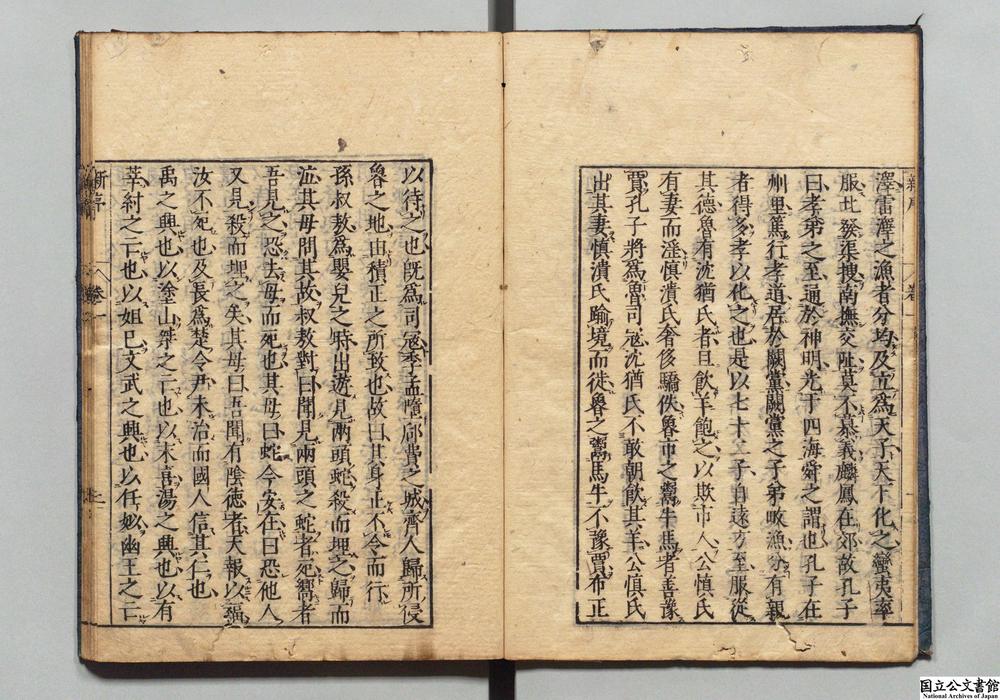 澤雷澤之漁者分均及立爲天子天下化之蠻夷率
服北發渠搜南撫交阯莫不慕義麟鳳在郊故孔子
曰孝弟之至通於神明光于四海舜之謂也孔子在
州里篤行孝道居於闕黨闕黨之子弟畋漁分有親
者得多孝以化之也是以七十二子自遠方至服從
其德魯有沈猶氏者旦飲羊飽之以欺市人公慎氏
有妻而淫慎潰氏奢侈驕佚魯市之鬻牛馬者善豫
賈孔子將爲魯司寇沈猶氏不敢朝飲其羊公慎氏
出其妻慎潰氏踰境而徙魯之鬻馬牛不豫賈布正
以待之也既爲司寇季孟墮郈費之城齊人歸所侵
魯之地由積正之所致也故曰其身正不令而行
孫叔敖爲嬰兒之時出遊見兩頭蛇殺而埋之歸而
泣其母問其故叔敖對曰聞見兩頭之蛇者死嚮者
吾見之恐去母而死也其母曰蛇今安在曰恐他人
又見殺而埋之矣其母曰吾聞有陰徳者天報以福
汝不死也及長爲楚令尹未治而國人信其仁也
禹之興也以塗山桀之亡也以末喜湯之興也以有
莘紂之亡也以妲己文武之興也以任姒幽王之亡
新序
卷一
国立公文書館
National Archives of Japan